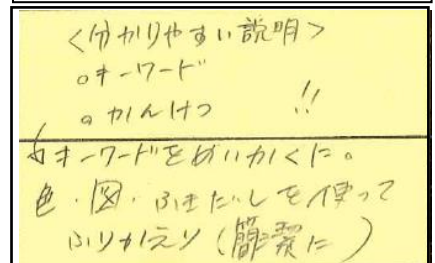 <分かりやすい説明>
。キーワード
。かんけつ !!
キーワードをめいかくに。
色・図・ふきだしを使って
ふりかえり(簡潔に)